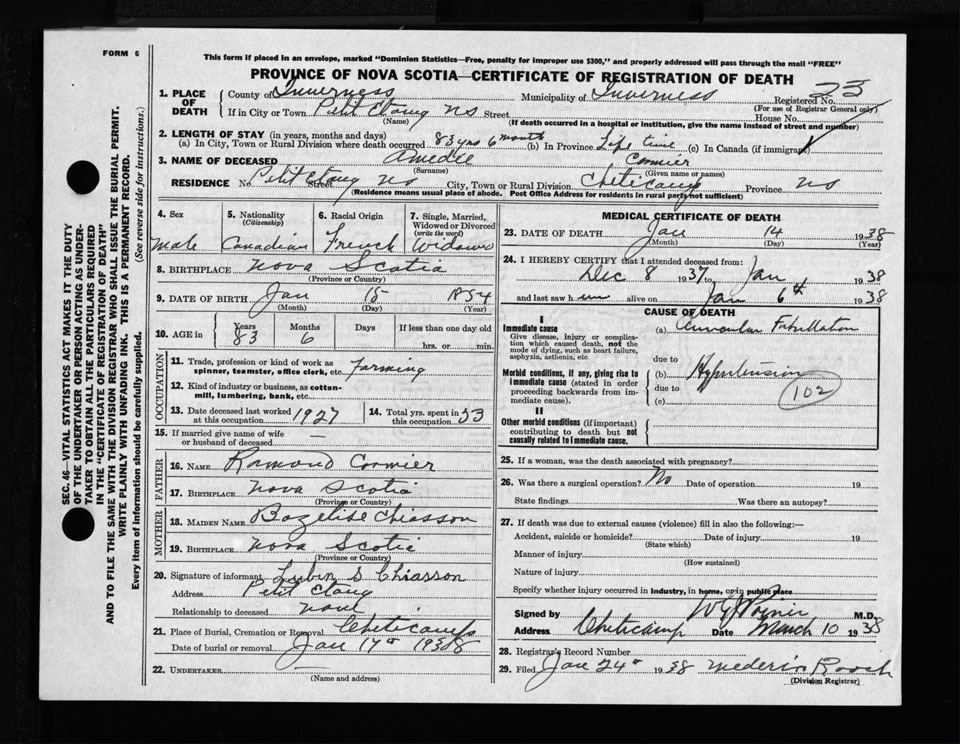 FORM 6
This form if placed in an envelope, marked "Dominion Statistics—Free, penalty for improper use $300," and properly addressed will pass through the mail "FREE"
PROVINCE OF NOVA SCOTIA—CERTIFICATE OF REGISTRATION OF DEATH
SEC. 46—VITAL STATISTICS ACT MAKES IT THE DUTY
OF THE UNDERTAKER OR PERSON ACTING AS UNDER-
TAKER TO OBTAIN ALL THE PARTICULARS REQUIRED
IN THE "CERTIFICATE OF REGISTRATION OF DEATH"
AND TO FILE THE SAME WITH THE DIVISION REGISTRAR WHO SHALL ISSUE THE BURIAL PERMIT.
WRITE PLAINLY WITH UNFADING INK. THIS IS A PERMANENT RECORD.
Every item of information should be carefully supplied. (See reverse side for instructions.)
1. PLACE OF DEATH
County of Inverness Municipality of Inverness Registered No. 23
(For use of Registrar General only)
If in City or Town Petit Etang NS Street House No.
(Name) (If death occurred in a hospital or institution, give the name instead of street and number)
2. LENGTH OF STAY (in years, months and days)
(a) In City, Town or Rural Division where death occurred 83 yrs 6 month (b) In Province Life time (c) In Canada (if immigrant)
3. NAME OF DECEASED Amedee Cormier
(Surname) (Given name or names)
RESIDENCE No. Petit Etang NS Street City, Town or Rural Division Cheticamp Province NS
(Residence means usual place of abode. Post Office Address for residents in rural parts not sufficient)
4. Sex
male
5. Nationality
(Citizenship)
Canadian
6. Racial Origin
French
7. Single, Married, Widowed or Divorced
(write the word)
Widower
8. BIRTHPLACE Nova Scotia
(Province or Country)
9. DATE OF BIRTH Jan 15 1854
(Month) (Day) (Year)
10. AGE in Years 83 Months 6 Days If less than one day old
hrs. or min.
OCCUPATION
11. Trade, profession or kind of work as
spinner, teamster, office clerk, etc. Farming
12. Kind of industry or business, as cotton-
mill, lumbering, bank, etc.
13. Date deceased last worked at this occupation 1927
14. Total yrs. spent in this occupation 53
15. If married give name of wife
or husband of deceased —
FATHER
16. NAME Ramond Cormier
17. BIRTHPLACE Nova Scotia
(Province or Country)
MOTHER
18. MAIDEN NAME Bazelise Chiasson
19. BIRTHPLACE Nova Scotia
(Province or Country)
20. Signature of informant Lubin S Chiasson
Address Petit Etang
Relationship to deceased none
21. Place of Burial, Cremation or Removal Cheticamp
Date of burial or removal Jan 17th 1938
22. UNDERTAKER —
(Name and address)
MEDICAL CERTIFICATE OF DEATH
23. DATE OF DEATH Jan 14 1938
(Month) (Day) (Year)
24. I HEREBY CERTIFY that I attended deceased from:
Dec 8 1937 to Jan 1938
and last saw him alive on Jan 6th 1938
CAUSE OF DEATH
I
Immediate cause
Give disease, injury or complica-
tion which caused death, not the
mode of dying, such as heart failure,
asphyxia, asthenia, etc.
(a) Auricular Fibrillation
due to
Morbid conditions, if any, giving rise to
immediate cause (stated in order
proceeding backwards from im-
mediate cause).
(b) Hypertension
due to
(c)
102
II
Other morbid conditions (if important)
contributing to death but not
causally related to immediate cause.
25. If a woman, was the death associated with pregnancy?
26. Was there a surgical operation? No Date of operation 19
State findings Was there an autopsy?
27. If death was due to external causes (violence) fill in also the following:—
Accident, suicide or homicide? Date of injury 19
(State which)
Manner of injury
(How sustained)
Nature of injury
Specify whether injury occurred in Industry, in home, or in public place
Signed by W G Poirier M.D.
Address Cheticamp Date March 10 1938
28. Registrar's Record Number
29. Filed Jan 24th 1938 Mederic Roach
(Division Registrar)